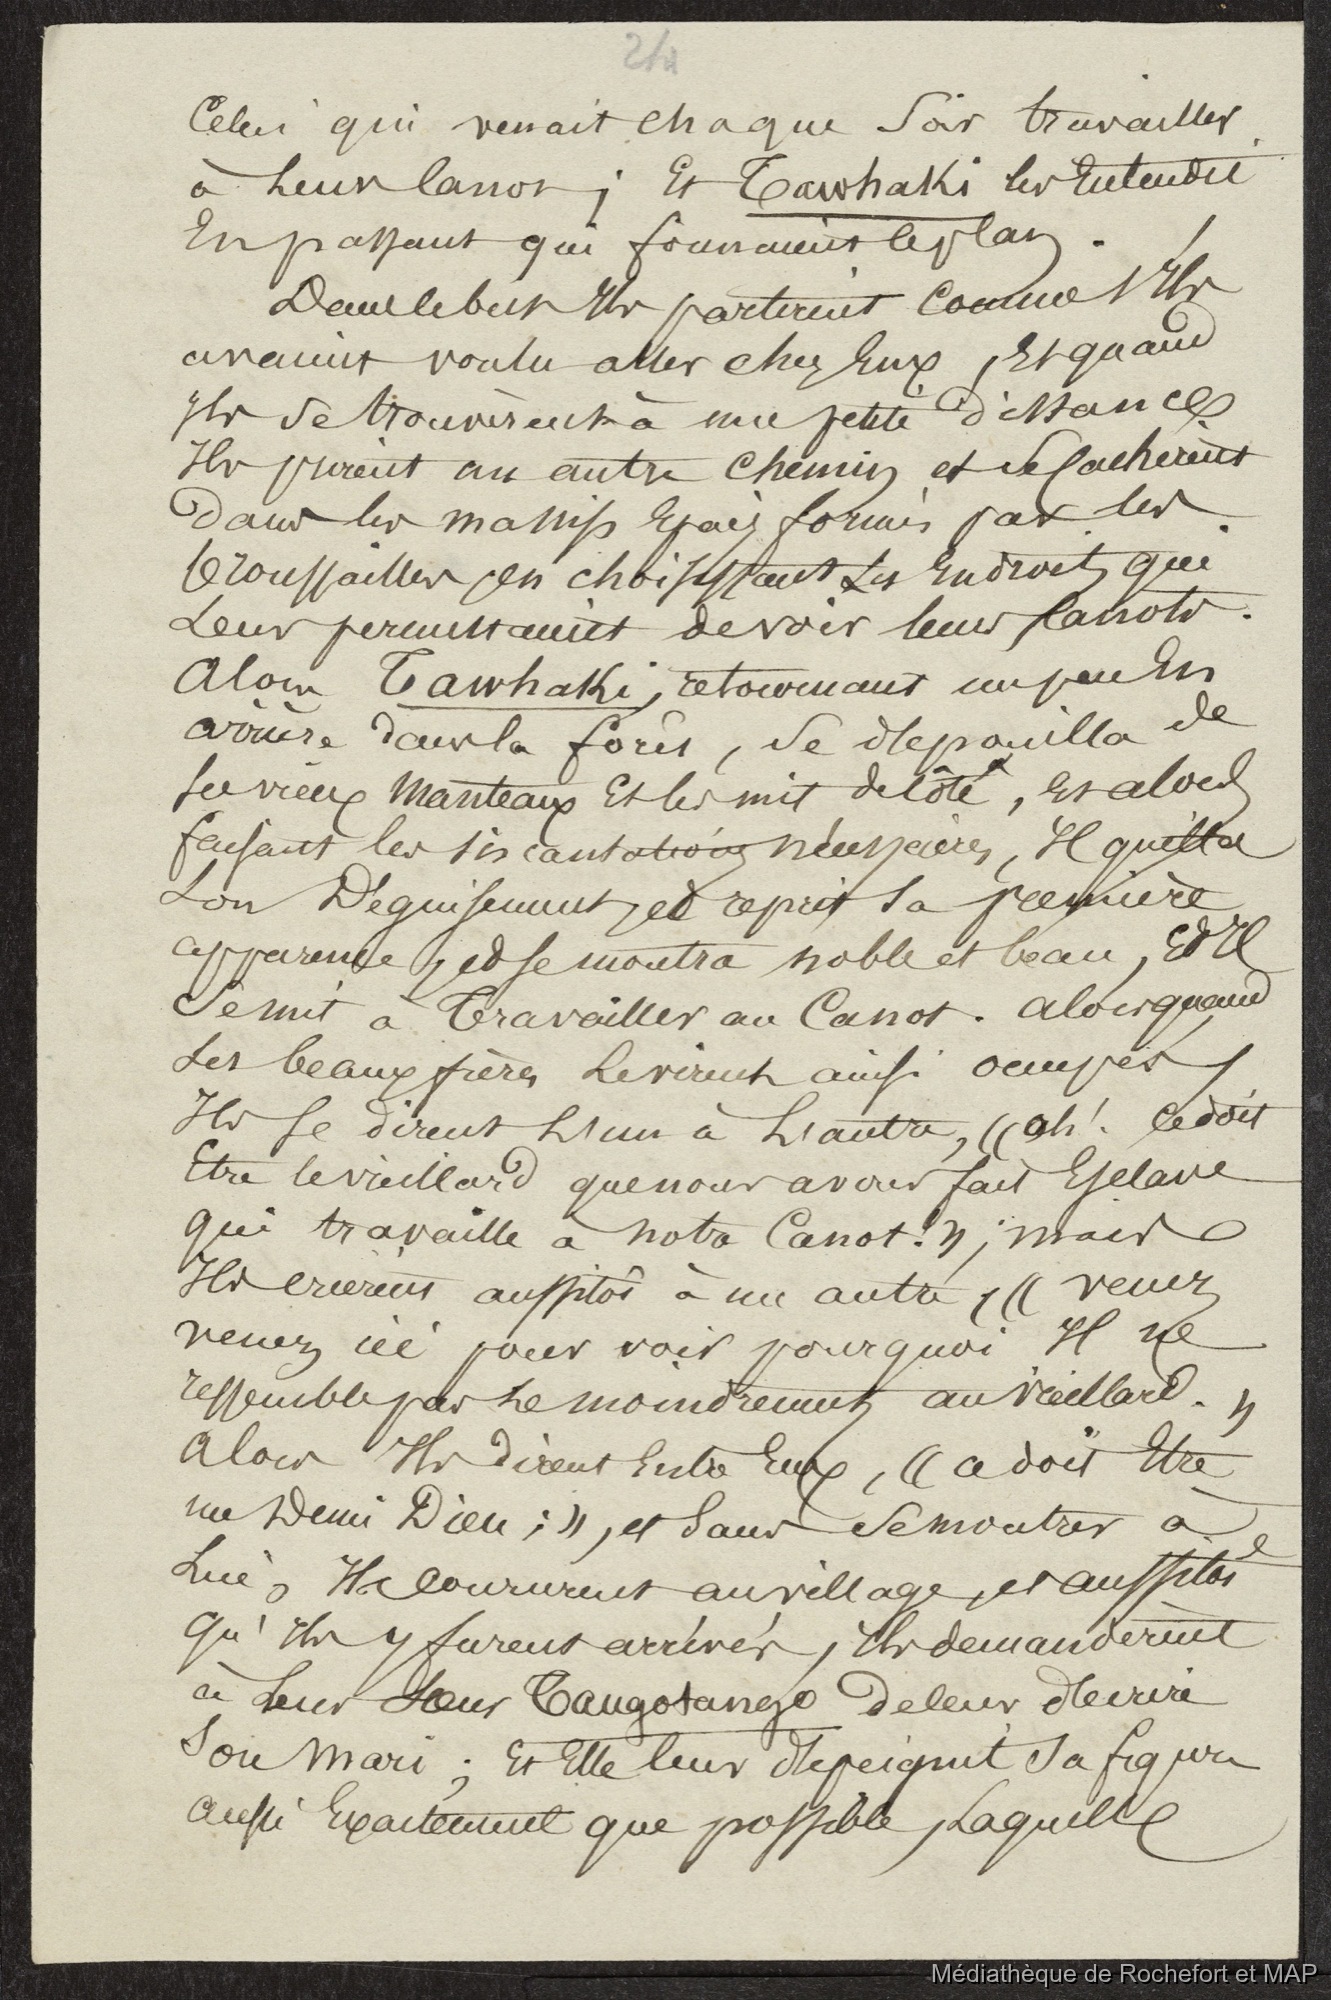 24
Celui qui venait chaque soir travailler
à leur Canot ; Et Tawhaki les Entendit
En passant qui formaient le plan.
Dans le but Ils partirent comme s'Ils
avaient voulu aller chez Eux, Et quand
Ils se trouvèrent à une petite distance
Ils prirent un autre chemin et se Cachèrent
dans les massifs Epais formés par les
broussailles en choisissant Les Endroits qui
Leur permettaient de voir leurs Canots.
Alors Tawhaki, retournant un peu En
arrière dans la forêt, se dépouilla de
ses vieux Manteaux Et les mit de Côté, Et alors
faisant les incantations nécessaires, Il quitta
son Déguisement, et reprit sa première
apparence, et se montra noble et beau, Et Il
se mit à Travailler au Canot. Alors quand
Les beaux frères Le virent ainsi occupés,
Ils se dirent L'un à L'autre, "Ah! Ce doit
Etre le vieillard que nous avons fait Esclave
qui travaille à notre Canot."; mais
Ils crièrent aussitôt à un autre, "venez
venez ici pour voir pourquoi Il ne
ressemble pas Le moindrement au Vieillard."
Alors Ils dirent Entre Eux, "Ca doit Etre
un Demi Dieu;", et Sans Se montrer à
Lui, Ils Coururent au village, et aussitôt
qu'Ils y furent arrivés, Ils demandèrent
à Leur Soeur Tangotango de leur décrire
Son Mari ; Et Elle leur dépeignit Sa figure
aussi Exactement que possible, Laquelle
Médiathèque de Rochefort et MAP